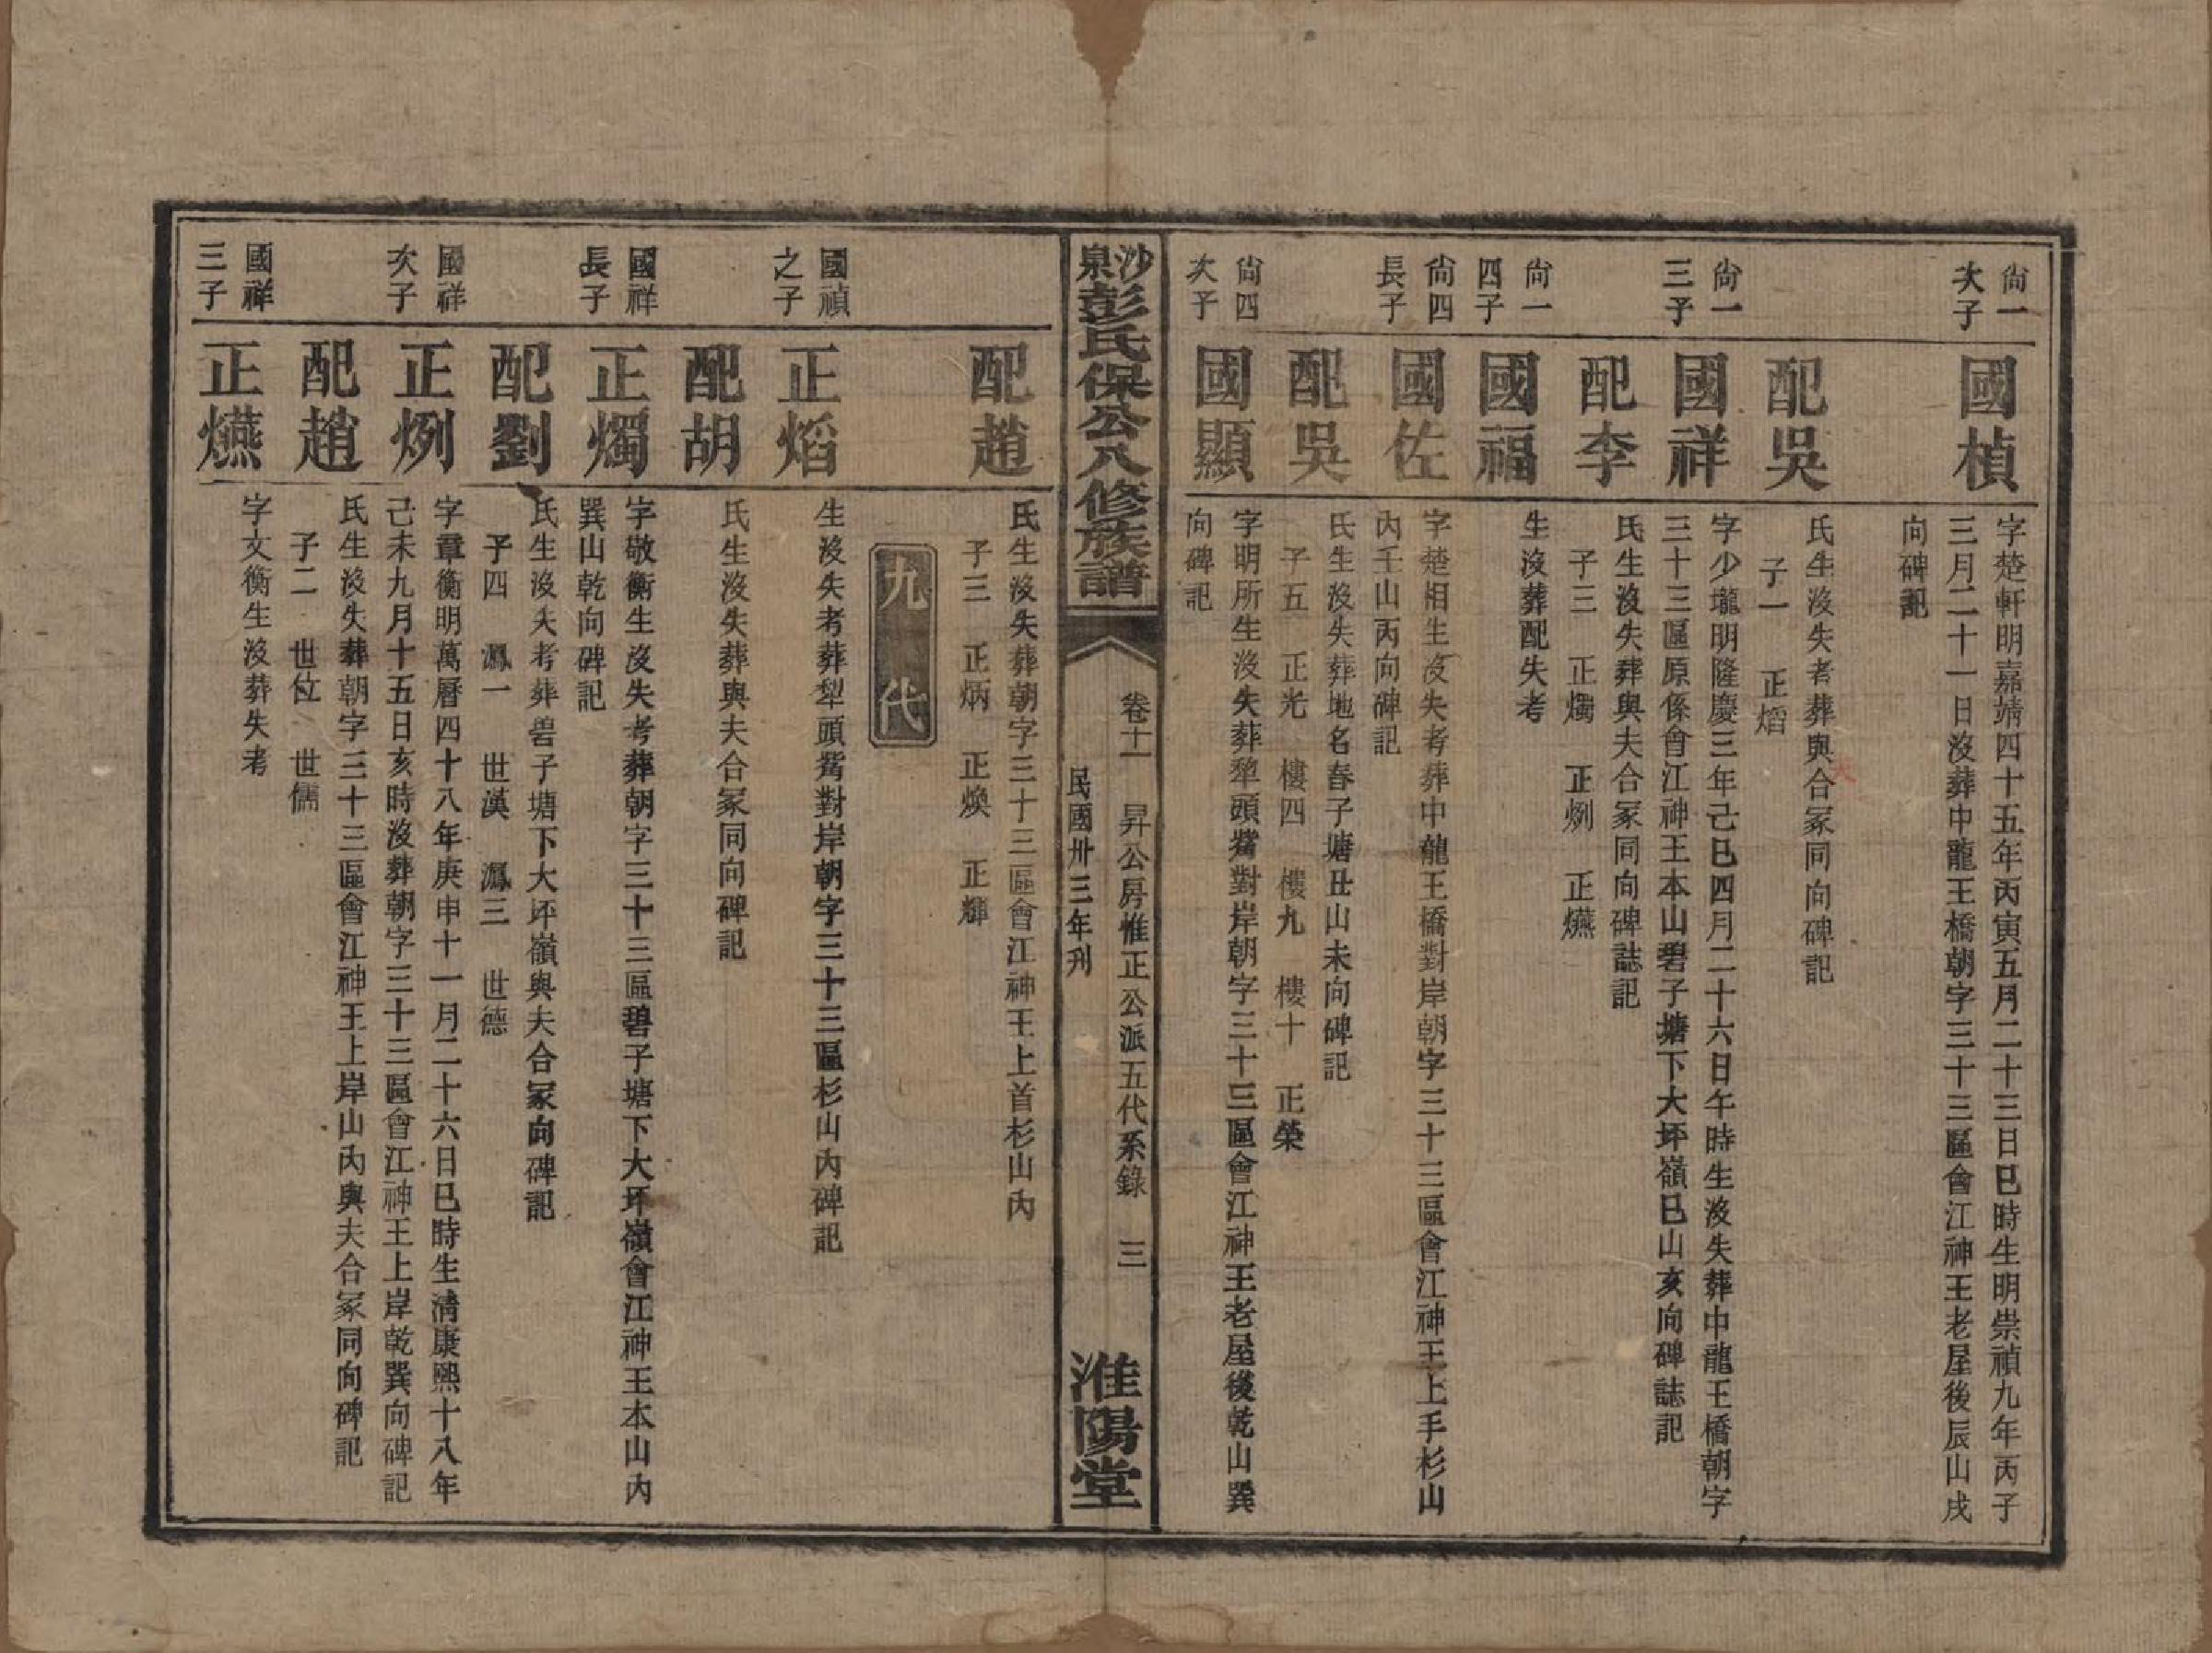 尚一
次子
國楨
字楚軒明嘉靖四十五年丙寅五月二十三日巳時生明崇禎九年丙子
三月二十一日沒葬中龍王橋朝字三十三區會江神王老屋後辰山戌
向碑記
配吳
氏生沒失考葬與合冢同向碑記
夫
子一 正熖
尚一
三子
國祥
字少瓏明隆慶三年己巳四月二十六日午時生沒失葬中龍王橋朝字
三十三區原係會江神王本山碧子塘下大坪嶺巳山亥向碑誌記
配李
氏生沒失葬與夫合冢同向碑誌記
子三 正燭 正烈 正燕
尚一
四子
國福
生沒葬配失考
尚四
長子
國佐
字楚相生沒失考葬中龍王橋對岸朝字三十三區會江神王上手杉山
內壬山丙向碑記
配吳
氏生沒失葬地名舂子塘丑山未向碑記
子五 正光 樓四 樓九 樓十 正榮
尚四
次子
國顯
字明所生沒失葬犂頭觜對岸朝字三十三區會江神王老屋後乾山巽
向碑記
沙泉彭氏保公八修族譜
卷十一 昇公房惟正公派五代系錄 三
民國卅三年刋
淮陽堂
配趙
氏生沒失葬朝字三十三區會江神王上首杉山內
子三 正炳 正煥 正輝
九代
國禎
之子
正熖
生沒失考葬犂頭觜對岸朝字三十三區杉山內碑記
配胡
氏生沒失葬與夫合冢同向碑記
國祥
長子
正燭
字敬衡生沒失考葬朝字三十三區碧子塘下大坪嶺會江神王本山內
巽山乾向碑記
配劉
氏生沒失考葬碧子塘下大坪嶺與夫合冢向碑記
子四 鳳一 世漢 鳳三 世德
國祥
次子
正烈
字章衡明萬曆四十八年庚申十一月二十六日巳時生淸康熙十八年
己未九月十五日亥時沒葬朝字三十三區會江神王上岸乾巽向碑記
配趙
氏生沒失葬朝字三十三區會江神王上岸山內與夫合冢同向碑記
子二 世位 世儒
國祥
三子
正燕
字文衡生沒葬失考